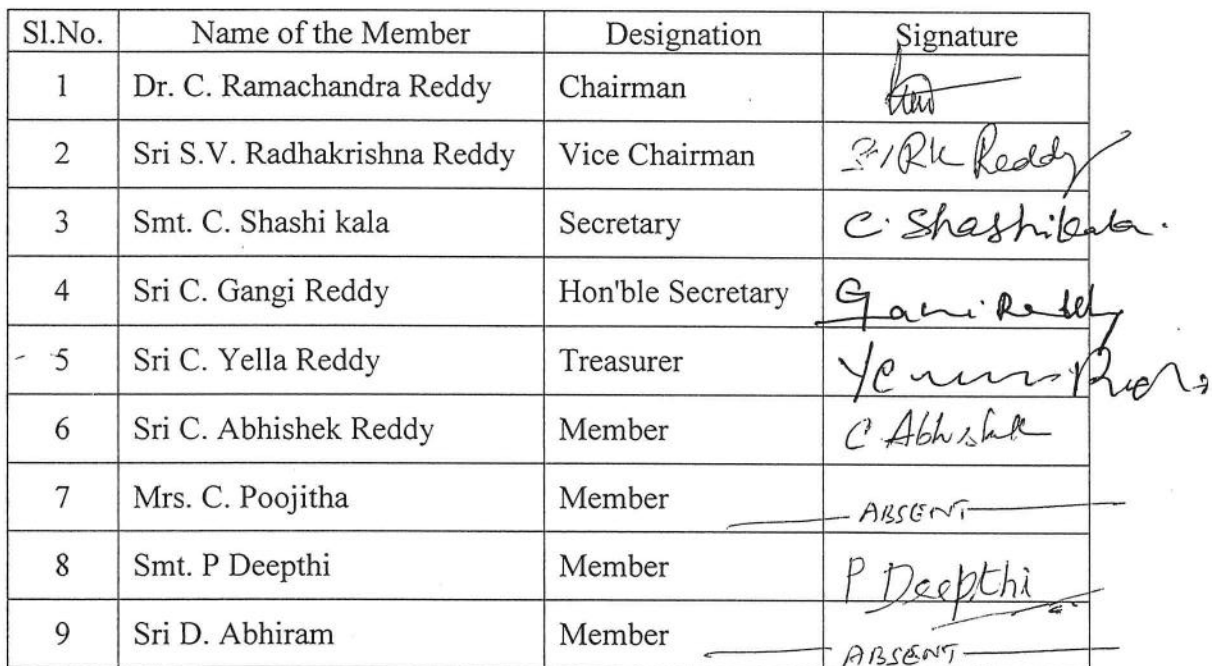 Sl.No. Name of the Member Designation Signature
1 Dr. C. Ramachandra Reddy Chairman
2 Sri S.V. Radhakrishna Reddy Vice Chairman RK Reddy
3 Smt. C. Shashi kala Secretary C. Shashikala.
4 Sri C. Gangi Reddy Hon'ble Secretary Gani Reddy
5 Sri C. Yella Reddy Treasurer
6 Sri C. Abhishek Reddy Member C Abhishek
7 Mrs. C. Poojitha Member ABSENT
8 Smt. P Deepthi Member P Deepthi
9 Sri D. Abhiram Member ABSENT